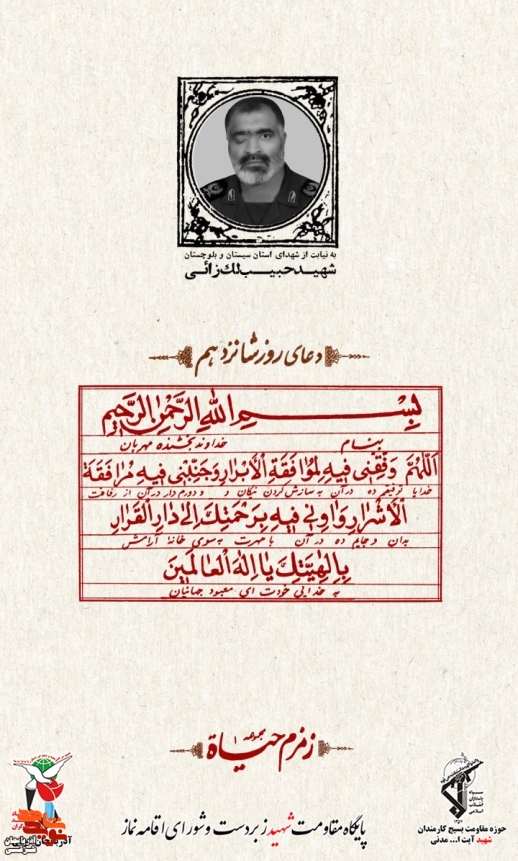 به نیابت از شهدای استان سیستان و بلوچستان
شهید حبیب لک زائی
دعای روز شانزدهم
بِسْمِ اللهِ الرَّحْمٰنِ الرَّحیمِ
بنام خداوند بخشنده مهربان
اَللّهُمَّ وَفِّقْنی فیهِ لِمُوافَقَةِ الْاَبْرارِ وَجَنِّبْنی فیهِ مُرافَقَةَ
خدایا توفیقم ده در آن به سازش کردن نیکان و دورم دار در آن از رفاقت
الْاَشْرارِ وَاوِنی فیهِ بِرَحْمَتِكَ اِلیٰ دارِ الْقَرارِ
بدان و جایم ده در آن با مهرت به سوی خانهٔ آرامش
بِاِلٰهِیَّتِكَ یا اِلٰهَ الْعالَمینَ
به خدایی خودت ای معبود جهانیان
مجموعه ۱
زمزم حیاة
پایگاه مقاومت شهید زبردست و شورای اقامه نماز
سپاه
پاسداران
انقلاب
اسلامی
حوزه مقاومت بسیج کارمندان
شهید آیت ا... مدنی